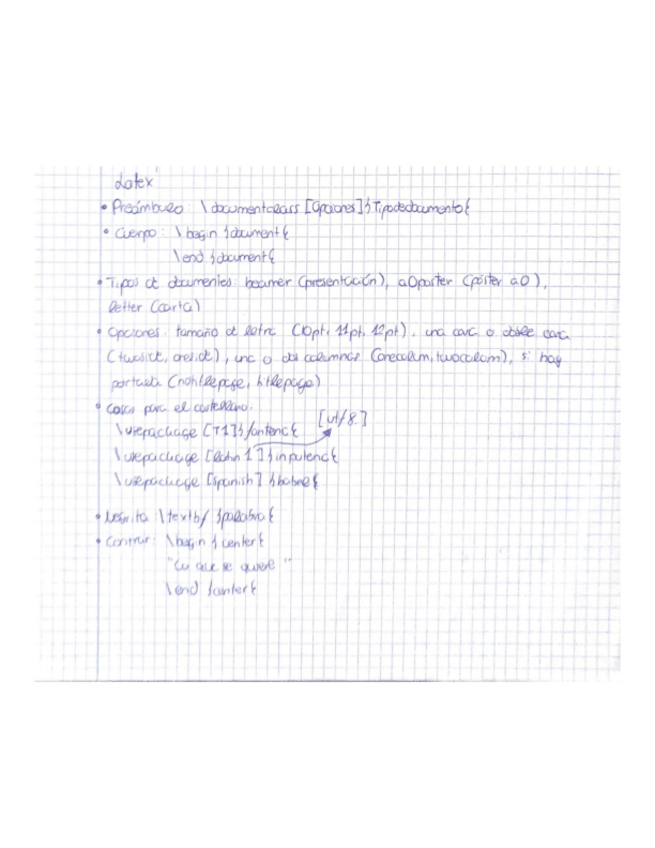 Latex
• Preámbulo: \documentclass [Opciones]{Tipodedocumento}
• Cuerpo: \begin {document}
\end {document}
• Tipos de documentos: beamer (presentación), a0poster (póster a0),
letter (carta)
• Opciones: tamaño de letra (10pt, 11pt, 12pt), una cara o doble cara
(twoside, oneside), una o dos columnas (onecolum, twocolum), si hay
portada (notitlepage, titlepage)
• Cosas para el castellano:
\usepackage [T1]{fontenc} [utf8]
\usepackage [latin 1]{inputenc}
\usepackage [spanish] {babel}
• Negrita: \textbf {palabra}
• Centrar: \begin {center}
"Lo que se quiere"
\end {center}